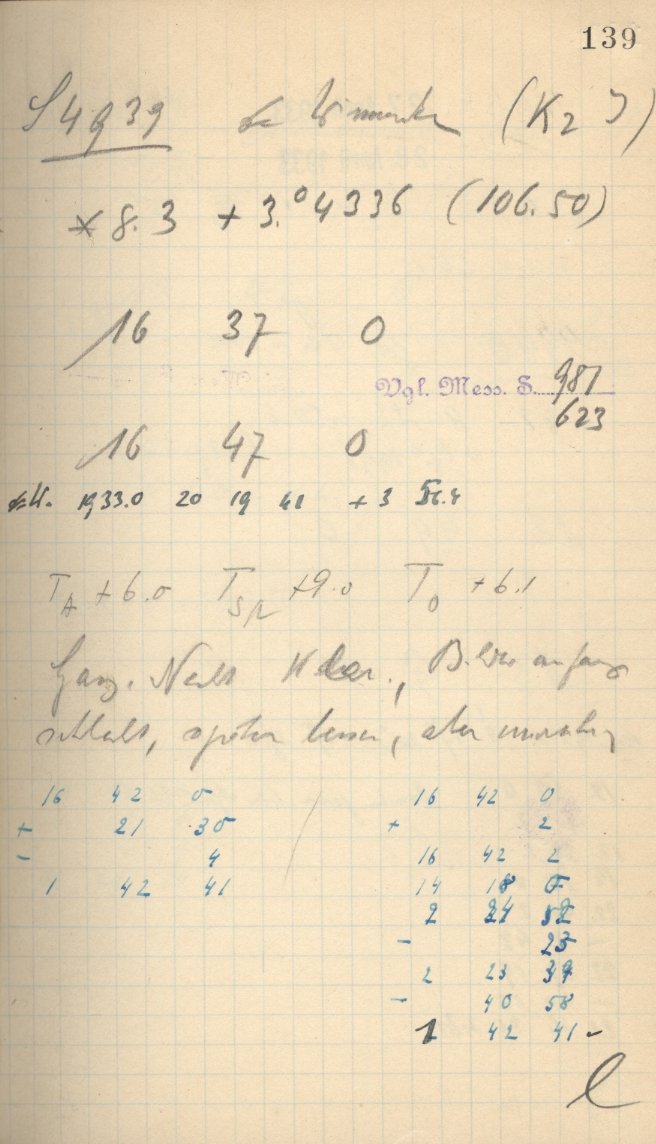 139
S 4939 (K2 J)
* 8.3 + 3.°4336 (106.50)
16 37 0
Vgl. Mess. S. 981
623
16 47 0
1933.0 20 19 41 + 3
TA + 6.0 TSp + 9.0 To + 6.1
Ganz. Bilder anfangs
schlecht, später besser, aber unruhig
16 42 0
+ 21 30
- 4
1 42 41
16 42 0
+ 2
16 42 2
14 18
2 24
- 23
2 23 39
- 40 58
1 42 41